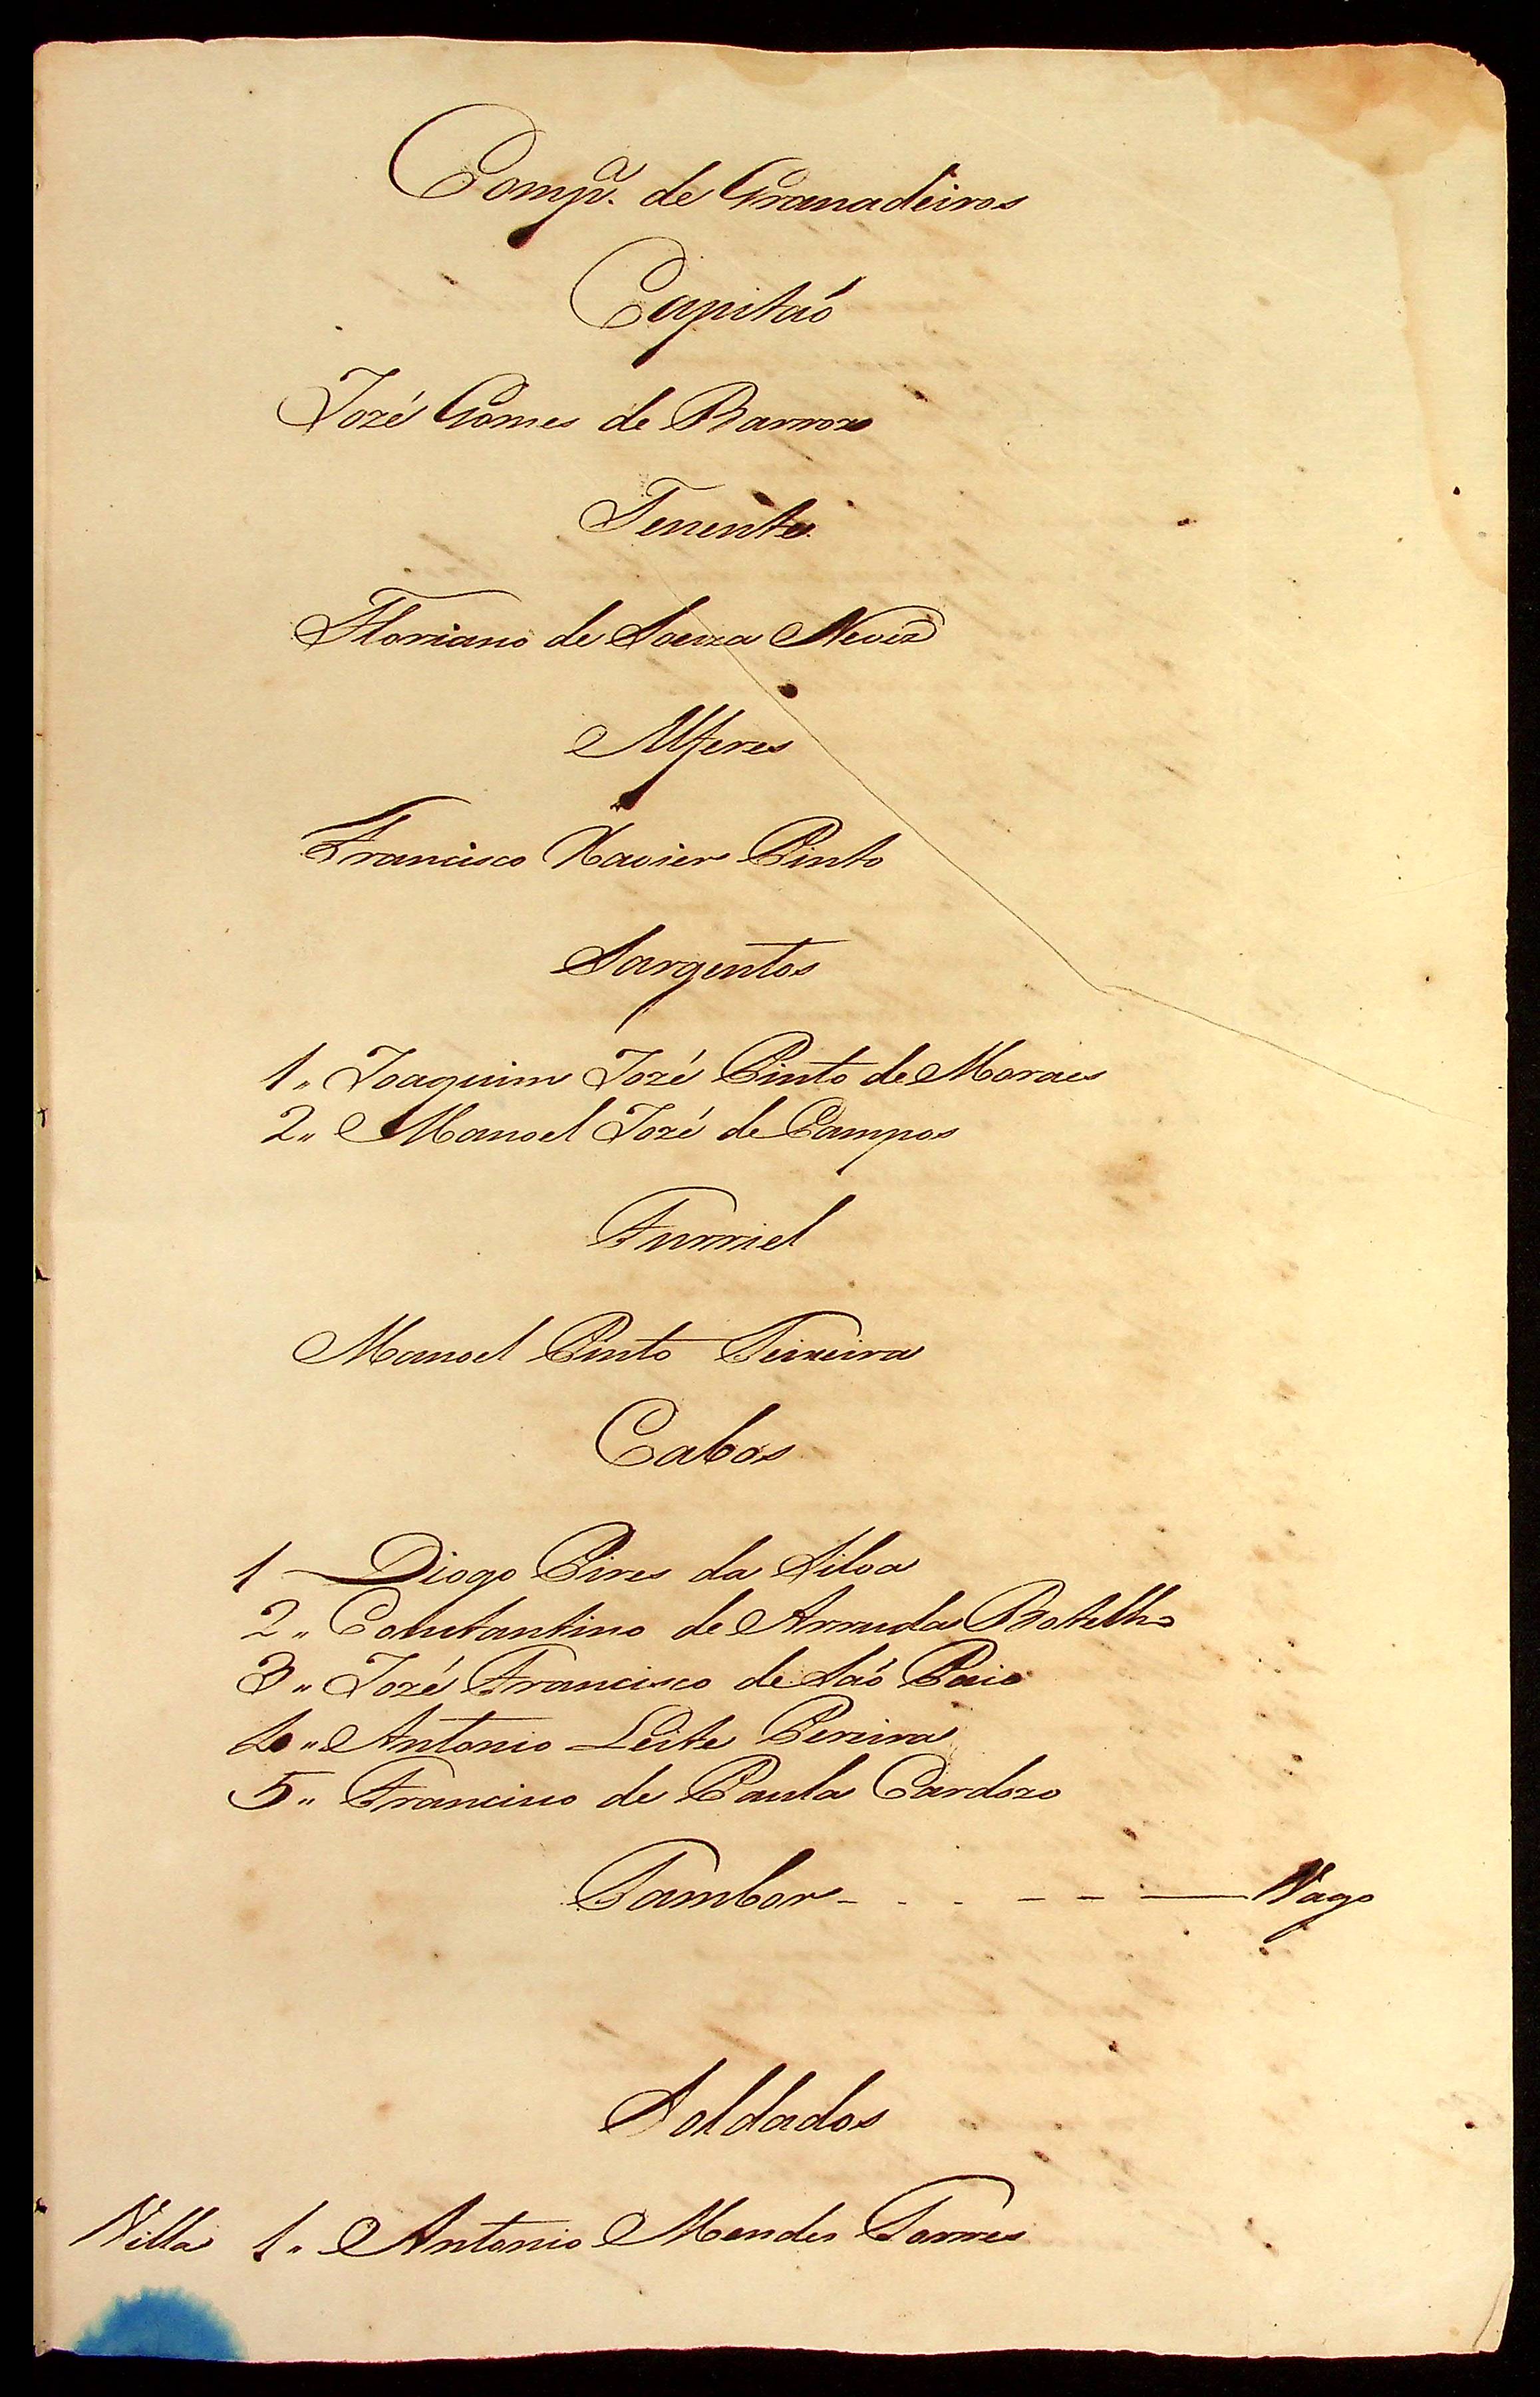 Compª. de Granadeiros
Capitaó
Jozé Gomes de Barros
Tenente
Floriano de Souza Neves
Alferes
Francisco Xavier Pinto
Sargentos
1" Joaquim Jozé Pinto de Moraes
2" Manoel Jozé de Campos
Furriel
Manoel Pinto Teixeira
Cabos
1 Diogo Pires da Silva
2" Constantino de Arruda Botelho
3" Jozé Francisco de Saó Paio
4" Antonio Leite Pereira
5" Francisco de Paula Cardozo
Tambor - - - - - — Vago
Soldados
Villa 1" Antonio Mendes Torres